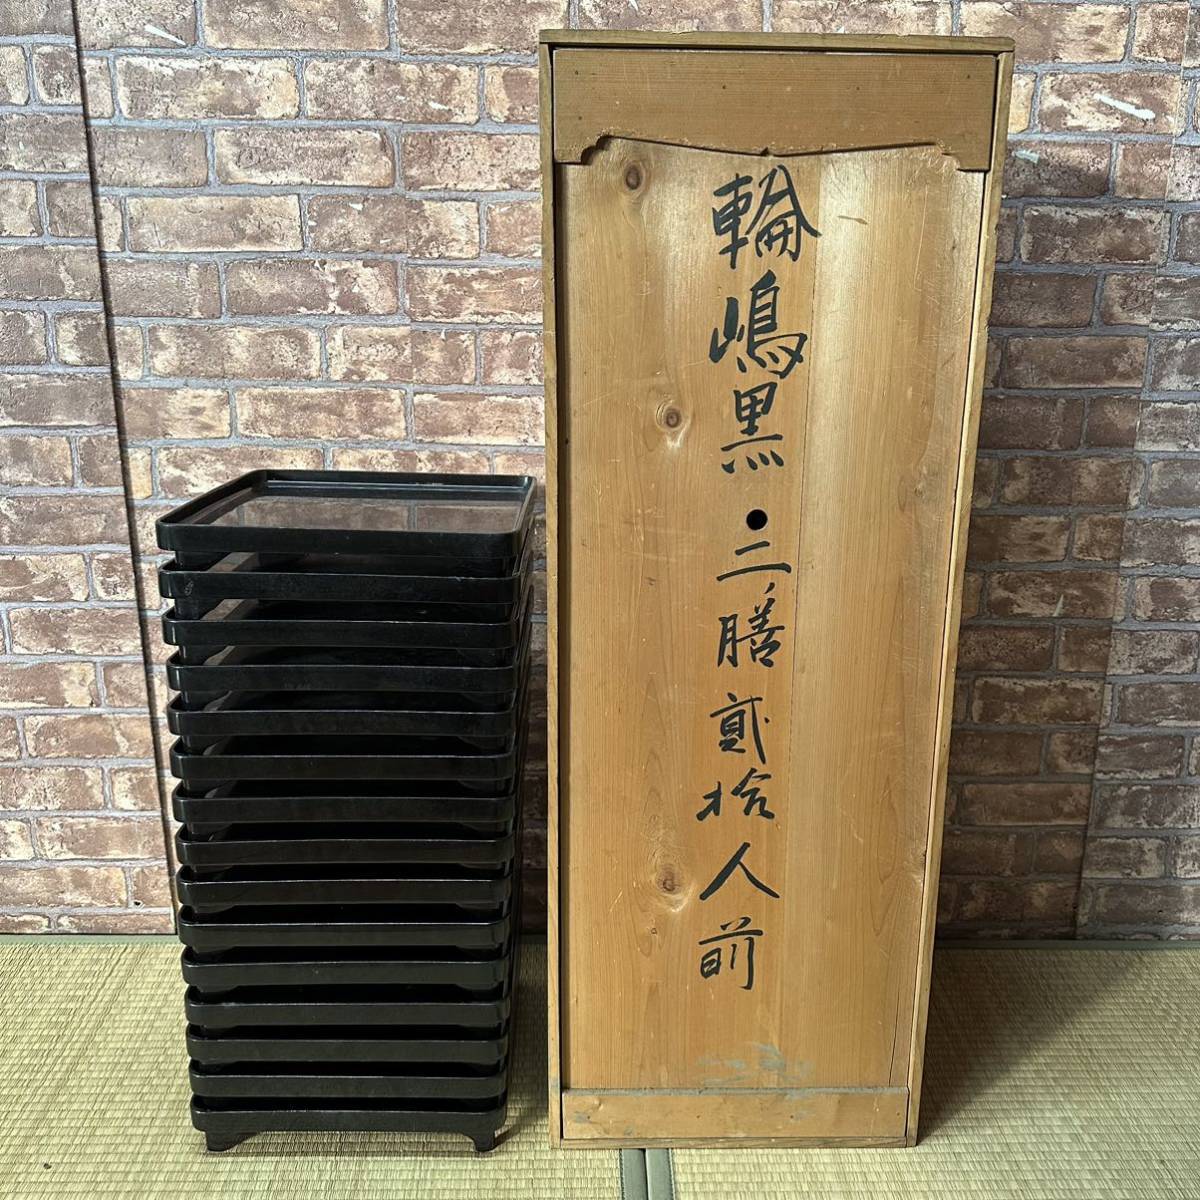 輪嶋黒・二ノ膳貳拾人前